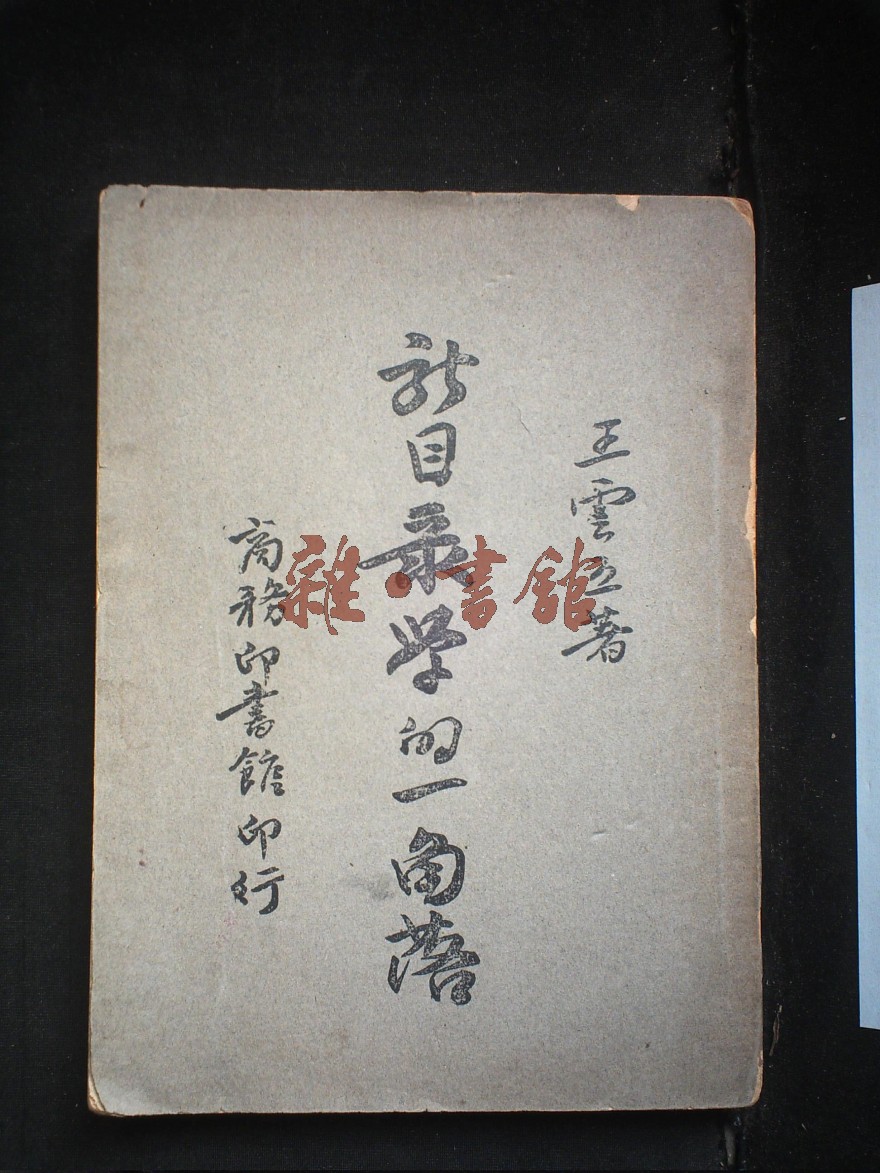 王雲五著
新目录学的一角落
商務印書館印行
雜·書館